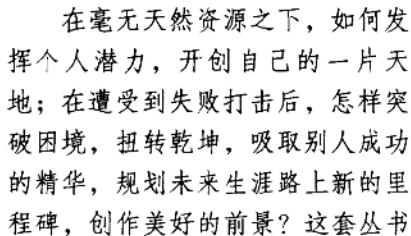 在毫无天然资源之下，如何发
挥个人潜力，开创自己的一片天
地；在遭受到失败打击后，怎样突
破困境，扭转乾坤，吸取别人成功
的精华，规划未来生涯路上新的里
程碑，创作美好的前景？这套丛书